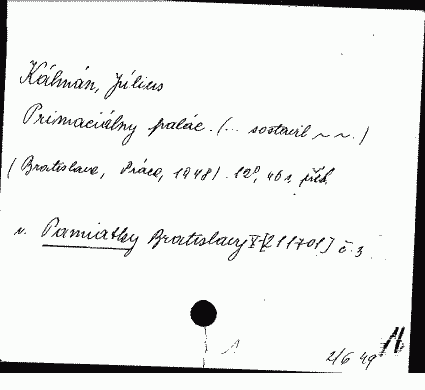 Kálmán, Július
Primaciálny palác. (... sostavil ~ ~.)
(Bratislava, Práca, 1948). 12°, 46 s. příl.
v. Pamiatky Bratislavy [211701] č. 3
2/6 49